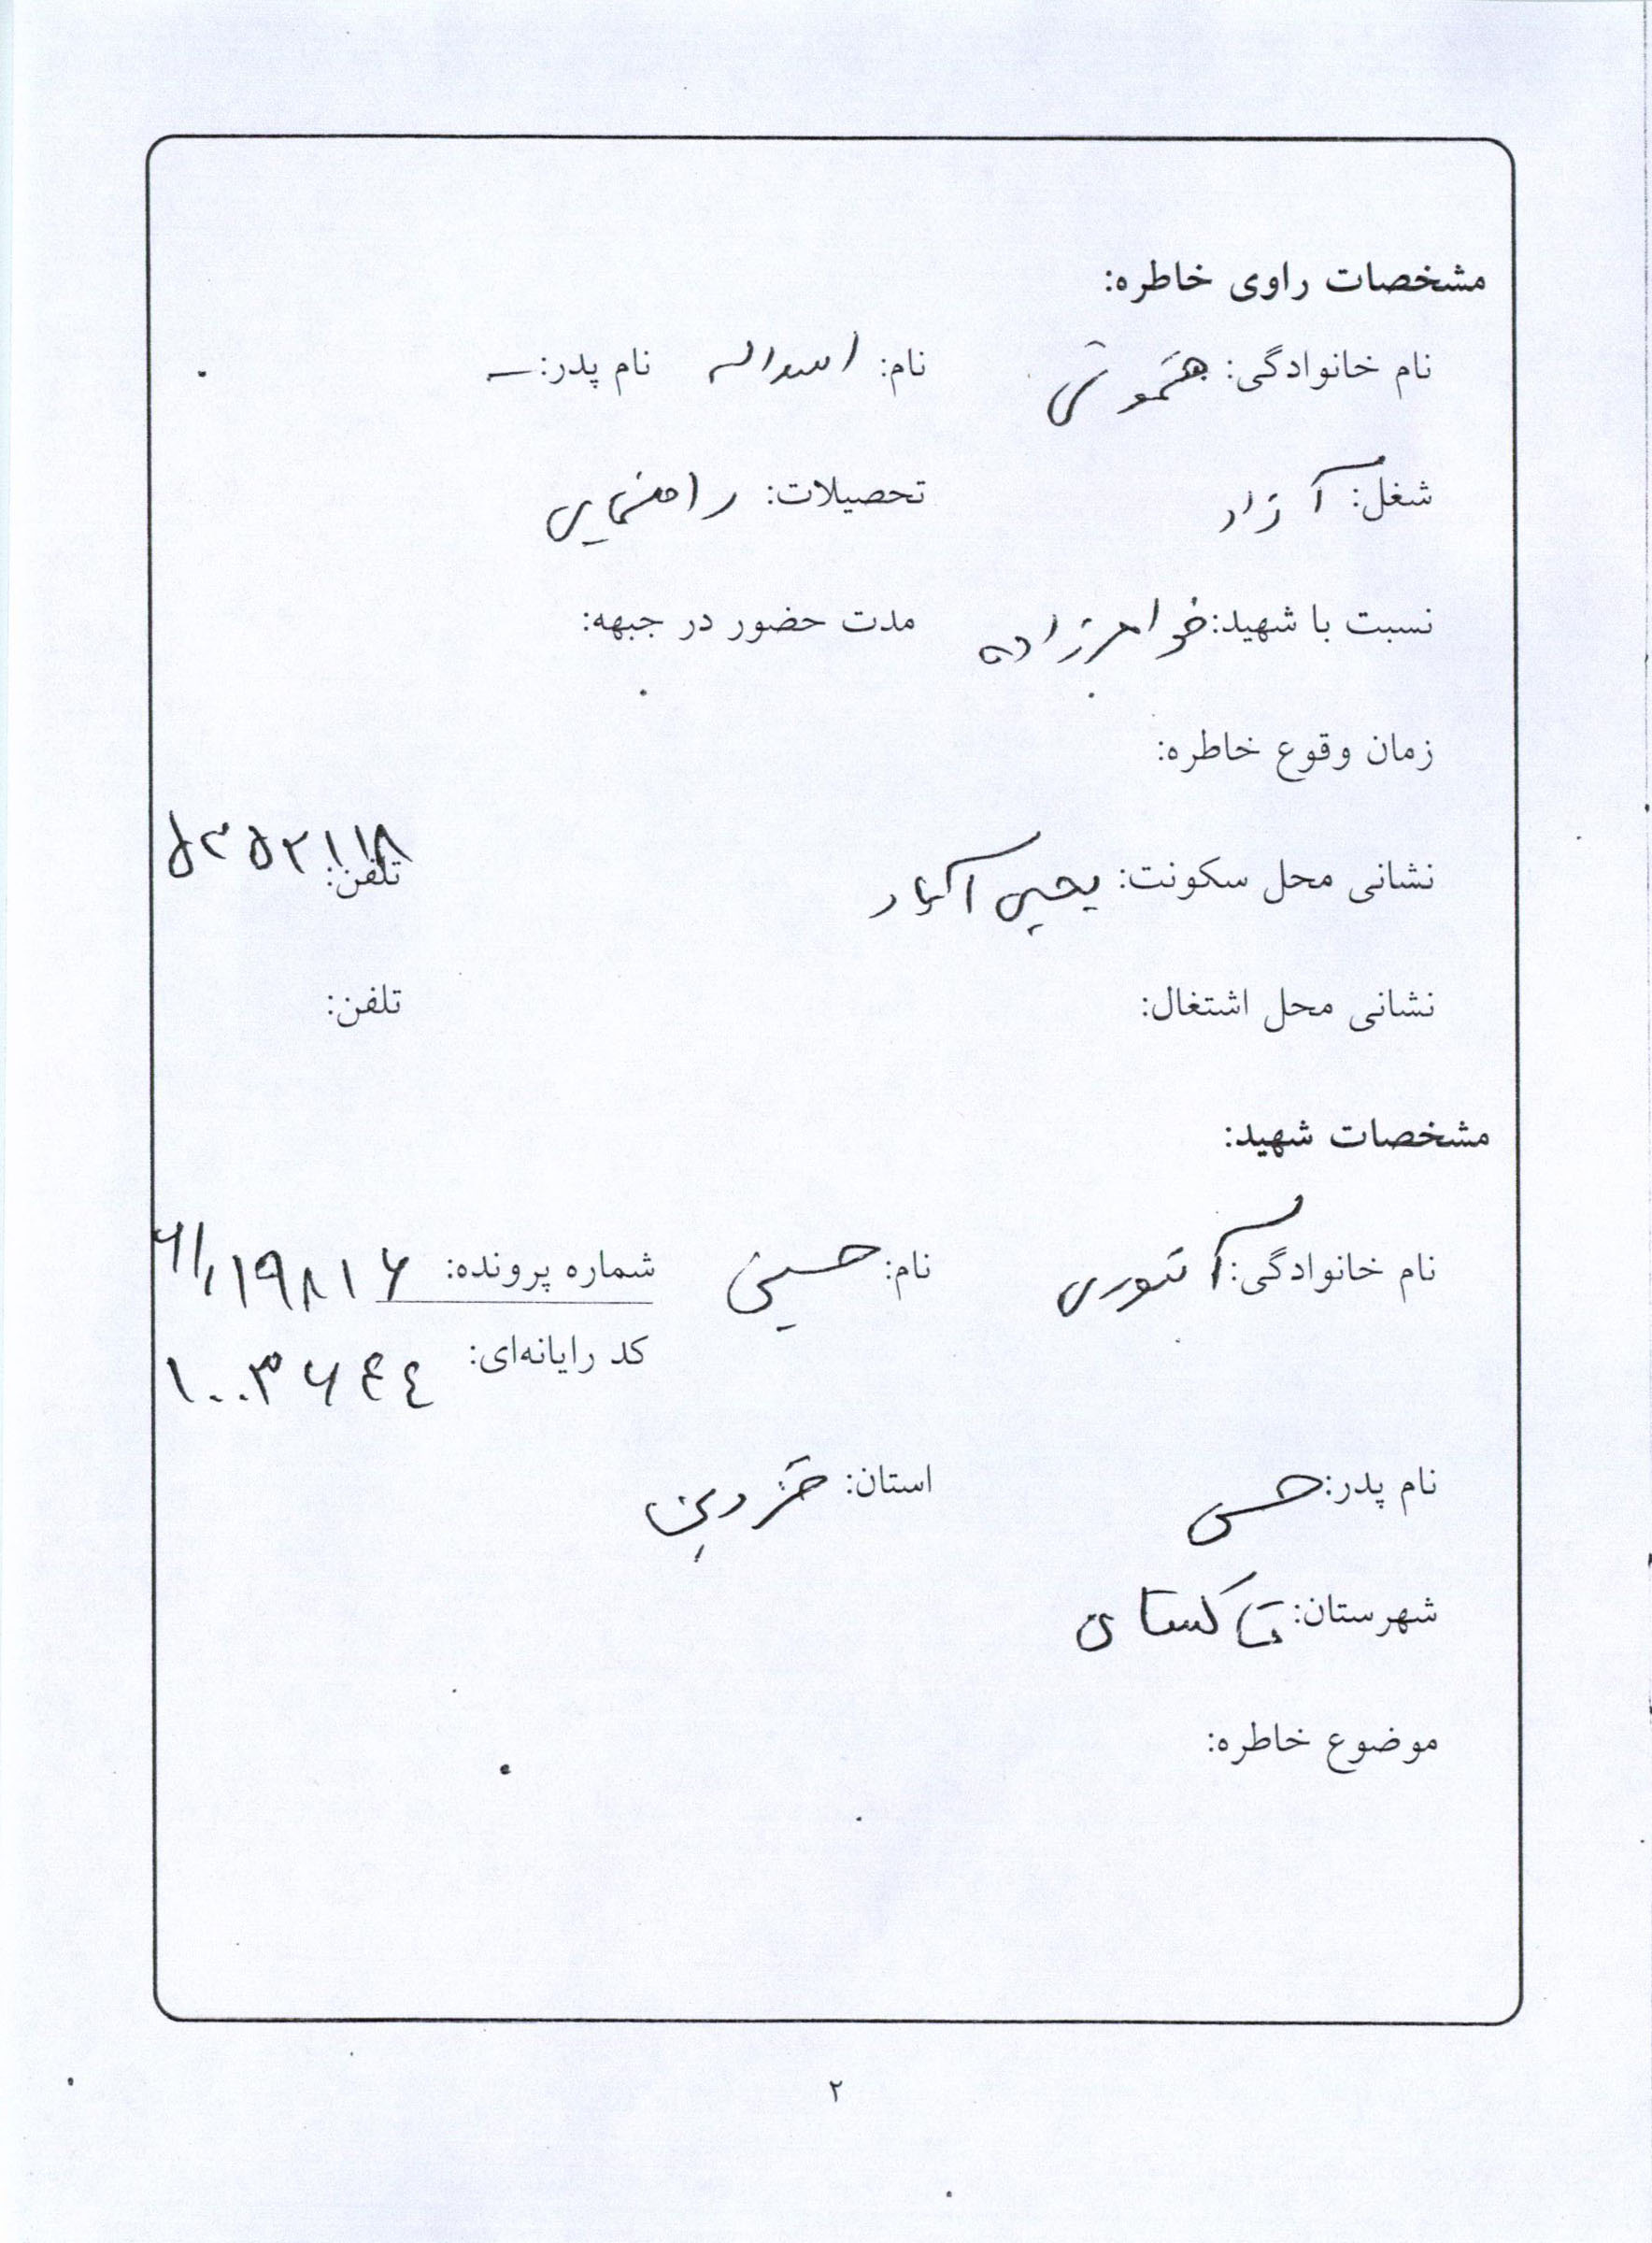 مشخصات راوی خاطره:
نام خانوادگی: نام: اسداله نام پدر: –
شغل: آزاد تحصیلات: راهنمایی
نسبت با شهید: خواهرزاده مدت حضور در جبهه:
زمان وقوع خاطره:
نشانی محل سکونت: یحیی آباد تلفن: ۵۳۵۲۱۱۸
نشانی محل اشتغال: تلفن:
مشخصات شهید:
نام خانوادگی: نام: حسین شماره پرونده:
کد رایانه‌ای: ۱۰۰۳۶۴۴
نام پدر: حسن استان: قزوین
شهرستان: تاکستان
موضوع خاطره:
۲